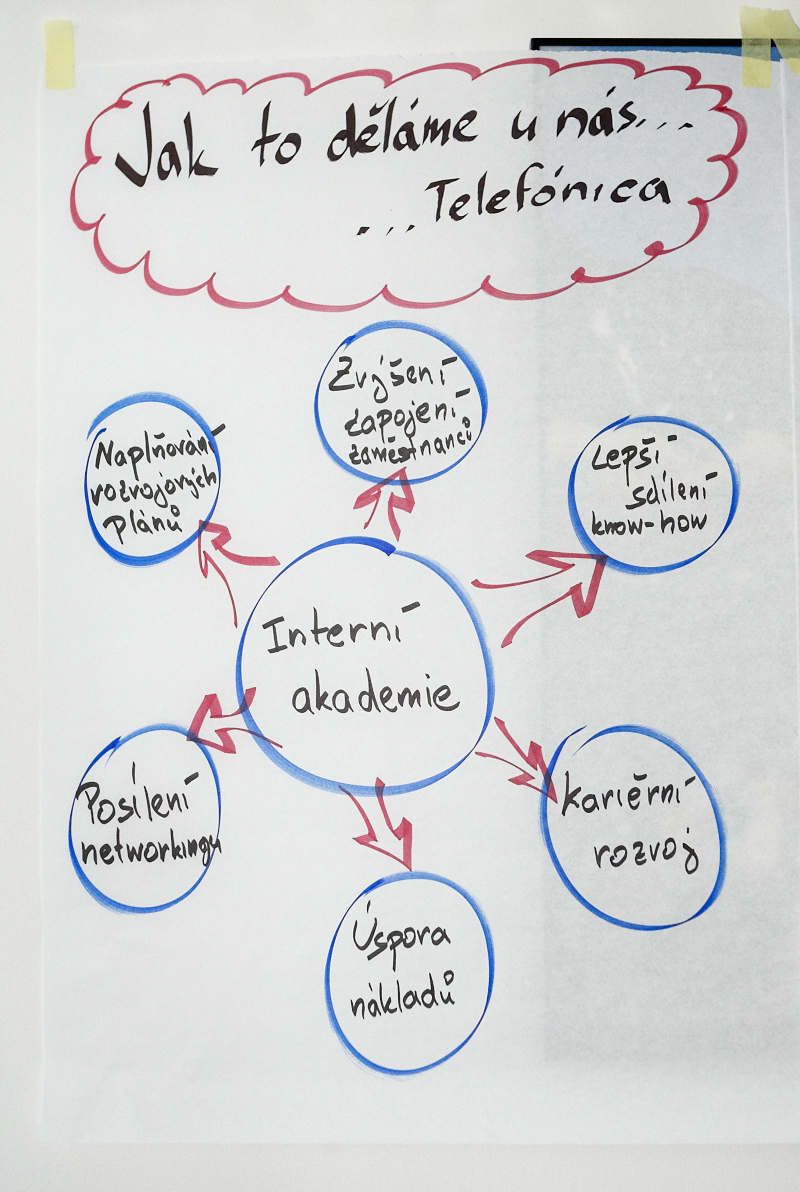 Jak to děláme u nás...
...Telefónica
Zvýšení
zapojení
zaměstnanců
Naplňování
rozvojových
plánů
Lepší
sdílení
know-how
Interní
akademie
Posílení
networkingu
kariérní
rozvoj
Úspora
nákladů